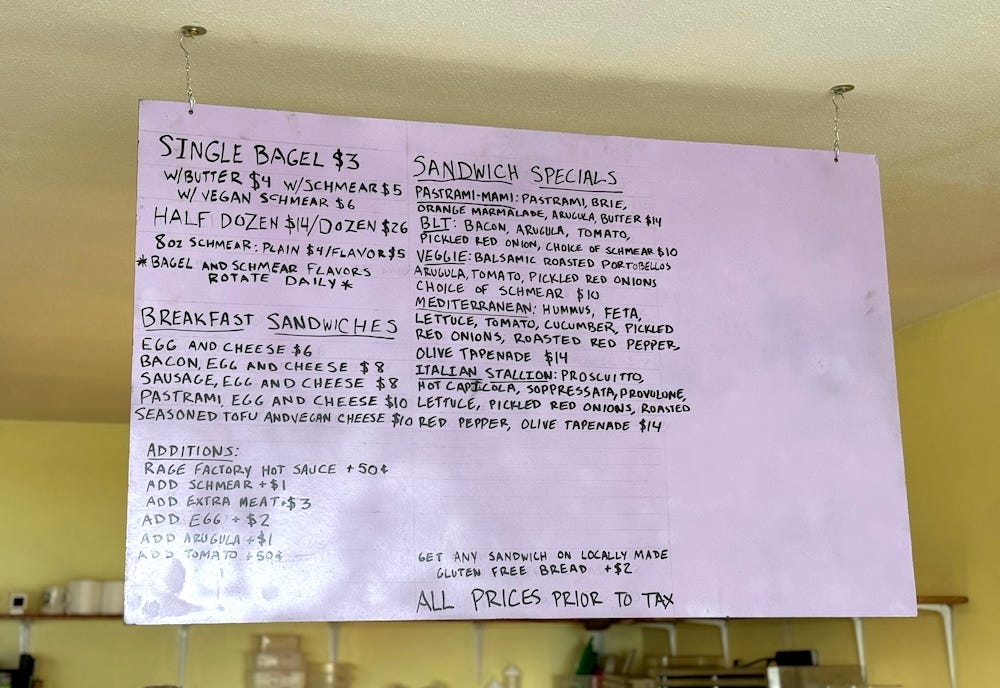 SINGLE BAGEL $3
W/BUTTER $4 W/SCHMEAR $5
W/ VEGAN SCHMEAR $6
HALF DOZEN $14/DOZEN $26
8oz SCHMEAR: PLAIN $4/FLAVOR $5
*BAGEL AND SCHMEAR FLAVORS
ROTATE DAILY*
BREAKFAST SANDWICHES
EGG AND CHEESE $6
BACON, EGG AND CHEESE $8
SAUSAGE, EGG AND CHEESE $8
PASTRAMI, EGG AND CHEESE $10
SEASONED TOFU AND VEGAN CHEESE $10
ADDITIONS:
RAGE FACTORY HOT SAUCE +50¢
ADD SCHMEAR +$1
ADD EXTRA MEAT +$3
ADD EGG + $2
ADD ARUGULA +$1
ADD TOMATO +50¢
SANDWICH SPECIALS
PASTRAMI-MAMI: PASTRAMI, BRIE,
ORANGE MARMALADE, ARUGULA, BUTTER $14
BLT: BACON, ARUGULA, TOMATO,
PICKLED RED ONION, CHOICE OF SCHMEAR $10
VEGGIE: BALSAMIC ROASTED PORTOBELLOS
ARUGULA, TOMATO, PICKLED RED ONIONS
CHOICE OF SCHMEAR $10
MEDITERRANEAN: HUMMUS, FETA,
LETTUCE, TOMATO, CUCUMBER, PICKLED
RED ONIONS, ROASTED RED PEPPER,
OLIVE TAPENADE $14
ITALIAN STALLION: PROSCUITTO,
HOT CAPICOLA, SOPPRESSATA, PROVOLONE,
LETTUCE, PICKLED RED ONIONS, ROASTED
RED PEPPER, OLIVE TAPENADE $14
GET ANY SANDWICH ON LOCALLY MADE
GLUTEN FREE BREAD +$2
ALL PRICES PRIOR TO TAX